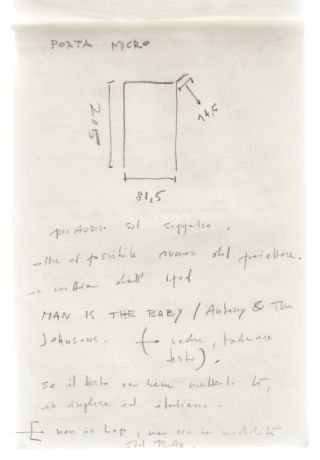 PORTA MICRO
205
14,5
81,5
per AUDIO sul soppalco,
oltre al possibile rumore del proiettore.
in
MAN IS THE BABY / Antony & The
Johnsons. (→ vedere, tradurre
testo).
se il testo va bene metterlo lì,
in inglese ed italiano.
non in loop, ma con la modalità
del PLAY.